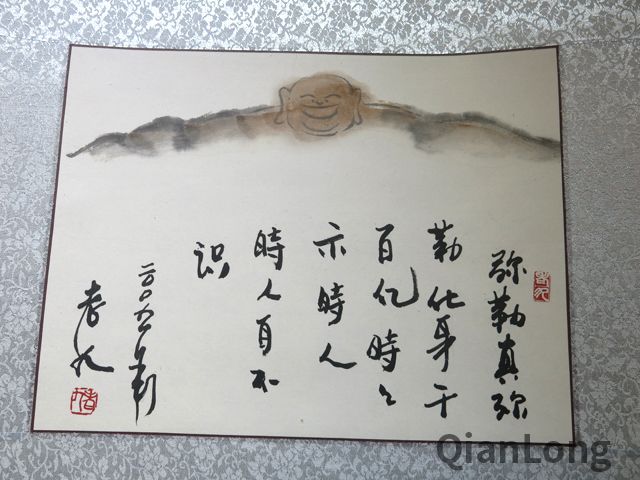 弥勒真弥
勒化身千
百亿時々
示時人
時人自不
识
二〇〇九年
老九
QianLong